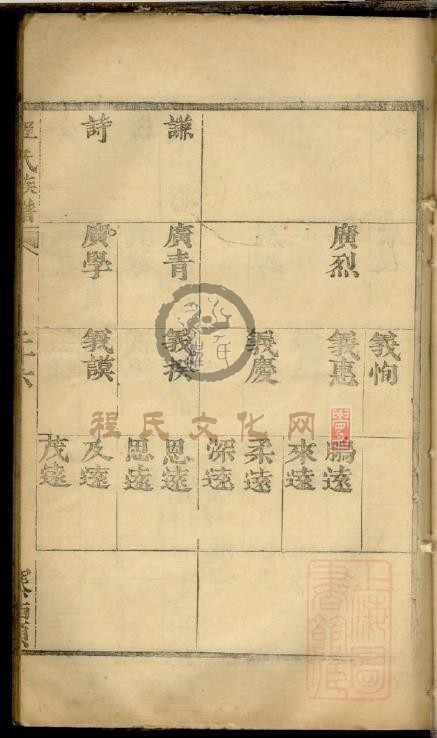 謙
詩
廣烈
廣青
廣學
義恂
義惠
義慶
義謨
鵬遠
來遠
柔遠
深遠
恩遠
思遠
及遠
茂遠
程氏族譜
二十六
程氏文化网
上海圖
書館